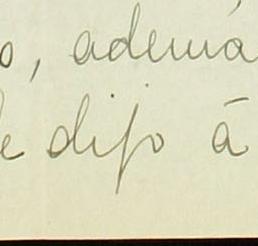 o, ademá
le dijo á